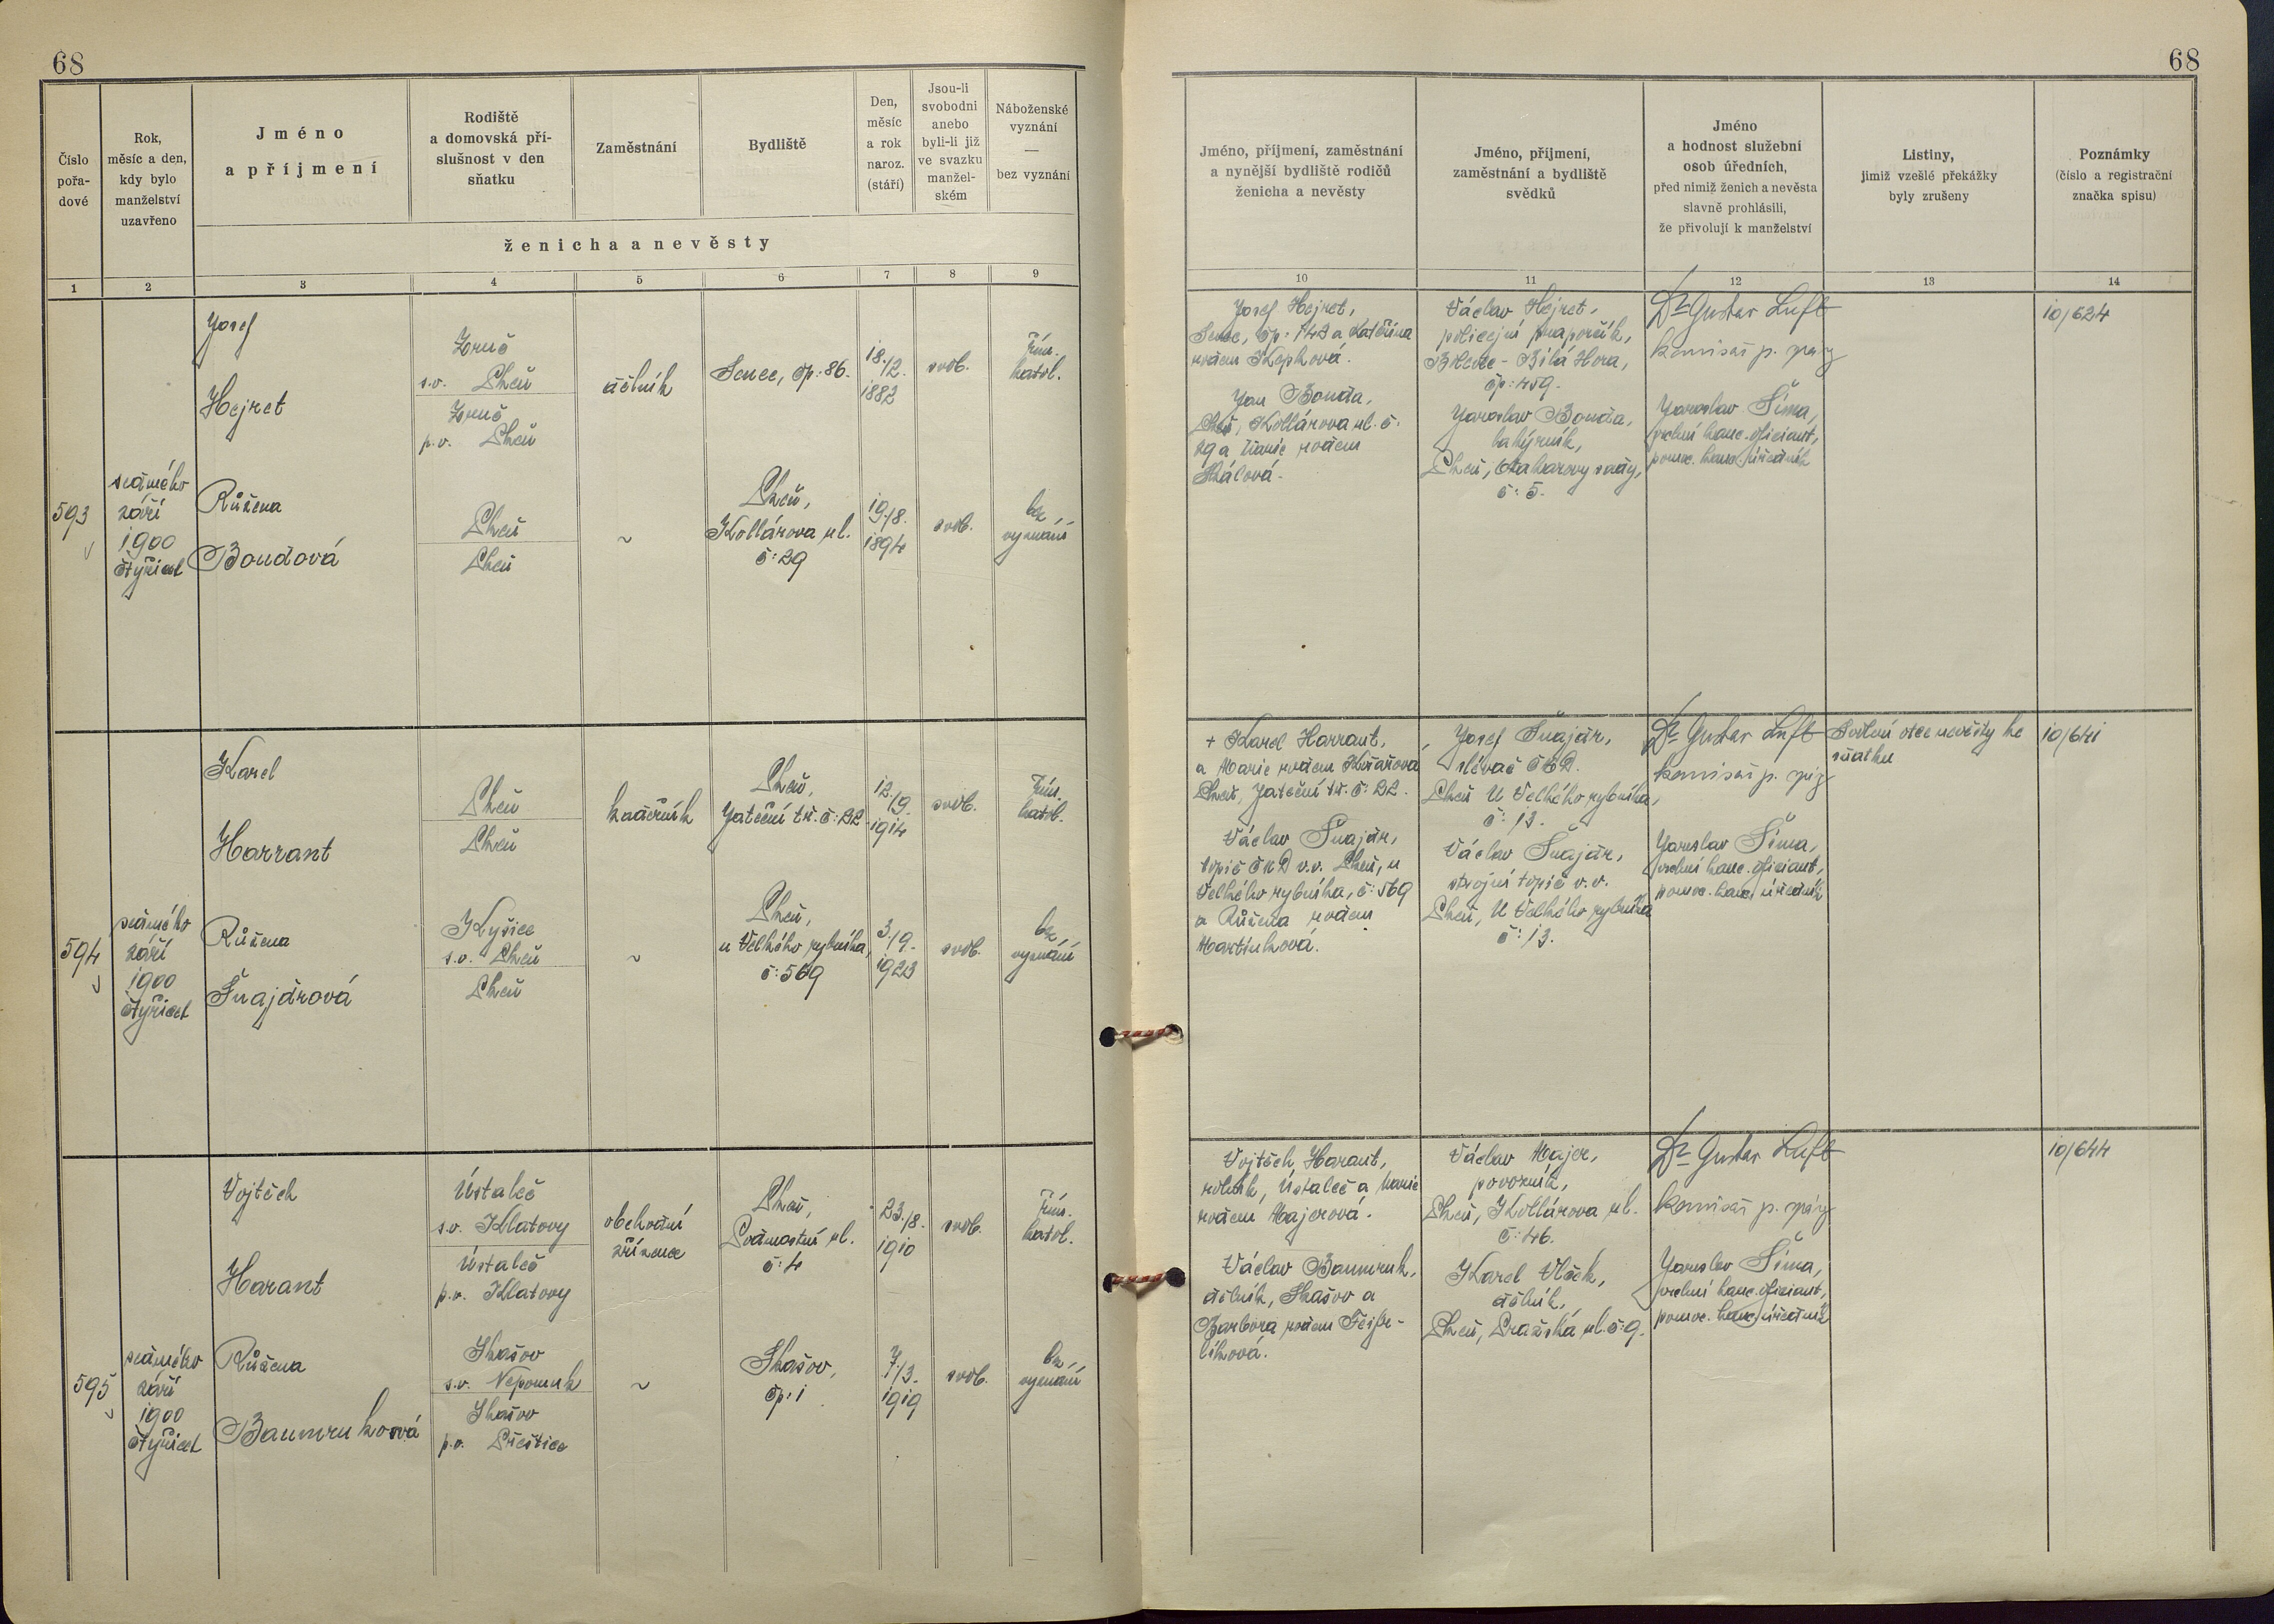 68
68
Číslo
pořa-
dové
Rok,
měsíc a den,
kdy bylo
manželství
uzavřeno
Jméno
a příjmení
Rodiště
a domovská pří-
slušnost v den
sňatku
Zaměstnání
Bydliště
Den,
měsíc
a rok
naroz.
(stáří)
Jsou-li
svobodni
anebo
byli-li již
ve svazku
manžel-
ském
Náboženské
vyznání
—
bez vyznání
ženicha a nevěsty
Jméno, příjmení, zaměstnání
a nynější bydliště rodičů
ženicha a nevěsty
Jméno, příjmení,
zaměstnání a bydliště
svědků
Jméno
a hodnost služební
osob úředních,
před nimiž ženich a nevěsta
slavně prohlásili,
že přivolují k manželství
Listiny,
jimiž vzešlé překážky
byly zrušeny
Poznámky
(číslo a registrační
značka spisu)
1 2 3 4 5 6 7 8 9
10 11 12 13 14
593
sedmého
září
1900
čtyřicet
Josef
Hejret
Zruč
s.o. Plzeň
Zruč
p.o. Plzeň
dělník
Senec, čp. 86.
18./12.
1882
svob.
řím.
katol.
Růžena
Boudová
Plzeň
Plzeň
~
Plzeň,
Kollárova ul.
č: 29
19./8.
1894
svob.
bez
vyznání
Josef Hejret,
Senec, čp. 142 a Kateřina
rodem
Jan Bouda,
Plzeň, Kollárova ul. č.
29 a Marie rodem
Václav Hejret,
policejní praporčík,
Břevnov - Bílá Hora,
čp. 459.
Jaroslav Bouda,
Plzeň, Otakarovy sady,
č: 5.
Dr Gustav Luft
komisař p. správy
Jaroslav Šíma,
vrchní kanc. oficiant,
pomoc. kanc. úředník
10/624
594
sedmého
září
1900
čtyřicet
Karel
Harrant
Plzeň
Plzeň
kadeřník
Plzeň,
Jateční tř. č: 22
12./9.
1914
svob.
řím.
katol.
Růžena
Šnajdrová
Kyšice
s.o. Plzeň
Plzeň
~
Plzeň,
u Velkého rybníka,
č: 569
3./9.
1923
svob.
bez
vyznání
+ Karel Harrant,
a Marie rodem
Plzeň, Jateční tř. č: 22.
Václav Šnajdr,
topič ČKD v.v. Plzeň, u
Velkého rybníka, č: 569
a Růžena rodem
Martínková.
Josef Šnajdr,
slévač
Plzeň U Velkého rybníka,
č: 13.
Václav Šnajdr,
strojní topič v.v.
Plzeň, U Velkého rybníka
č: 13.
Dr Gustav Luft
komisař p. správy
Jaroslav Šíma,
vrchní kanc. oficiant,
pomoc. kanc. úředník
Svolení otce nevěsty ke
sňatku
10/641
595
sedmého
září
1900
čtyřicet
Vojtěch
Harant
Ústaleč
s.o. Klatovy
Ústaleč
p.o. Klatovy
obchodní
zřízenec
Plzeň,
Solní ul.
č: 4
23./8.
1910
svob.
řím.
katol.
Růžena
Baumruková
Skašov
s.o. Nepomuk
Skašov
p.o. Přeštice
~
Skašov,
čp. 1
7./3.
1919
svob.
bez
vyznání
Vojtěch Harant,
rolník, Ústaleč a Marie
rodem Majerová.
Václav Baumruk,
dělník, Skašov a
Barbora rodem
Václav Majer,
povozník,
Plzeň, Kollárova ul.
č: 46.
Karel Vlček,
dělník,
Plzeň, Pražská ul. č: 9.
Dr Gustav Luft
komisař p. správy
Jaroslav Šíma,
vrchní kanc. oficiant,
pomoc. kanc. úředník
10/644